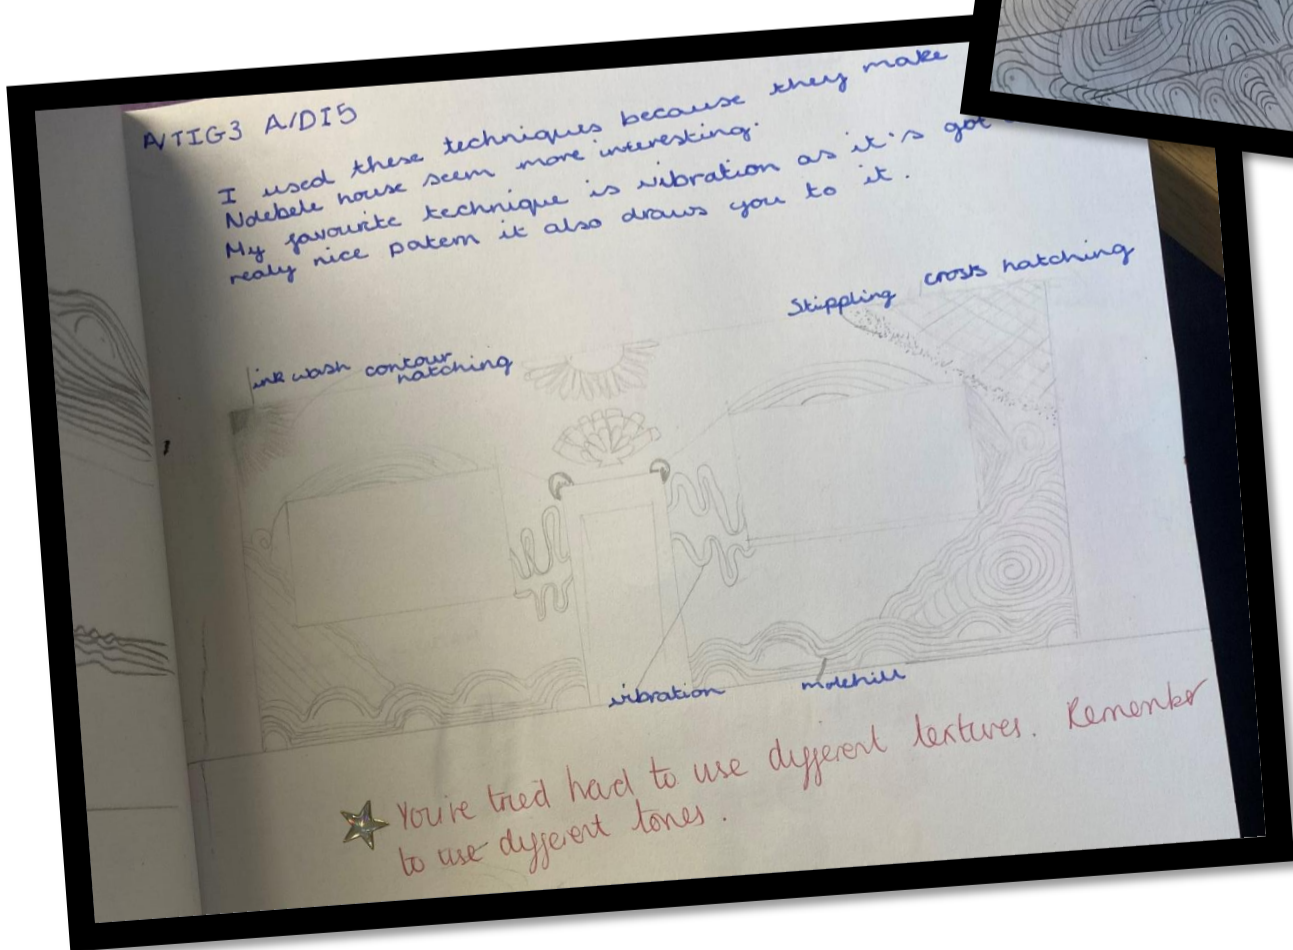 A/TIG3 A/DI5
I used these techniques because they make
Ndebele house seem more interesting.
My favourite technique is vibration as it's got
realy nice patern it also draws you to it.
Stippling cross hatching
ink wash contour
hatching
vibration molehill
You've tried hard to use different textures. Remember
to use different tones.